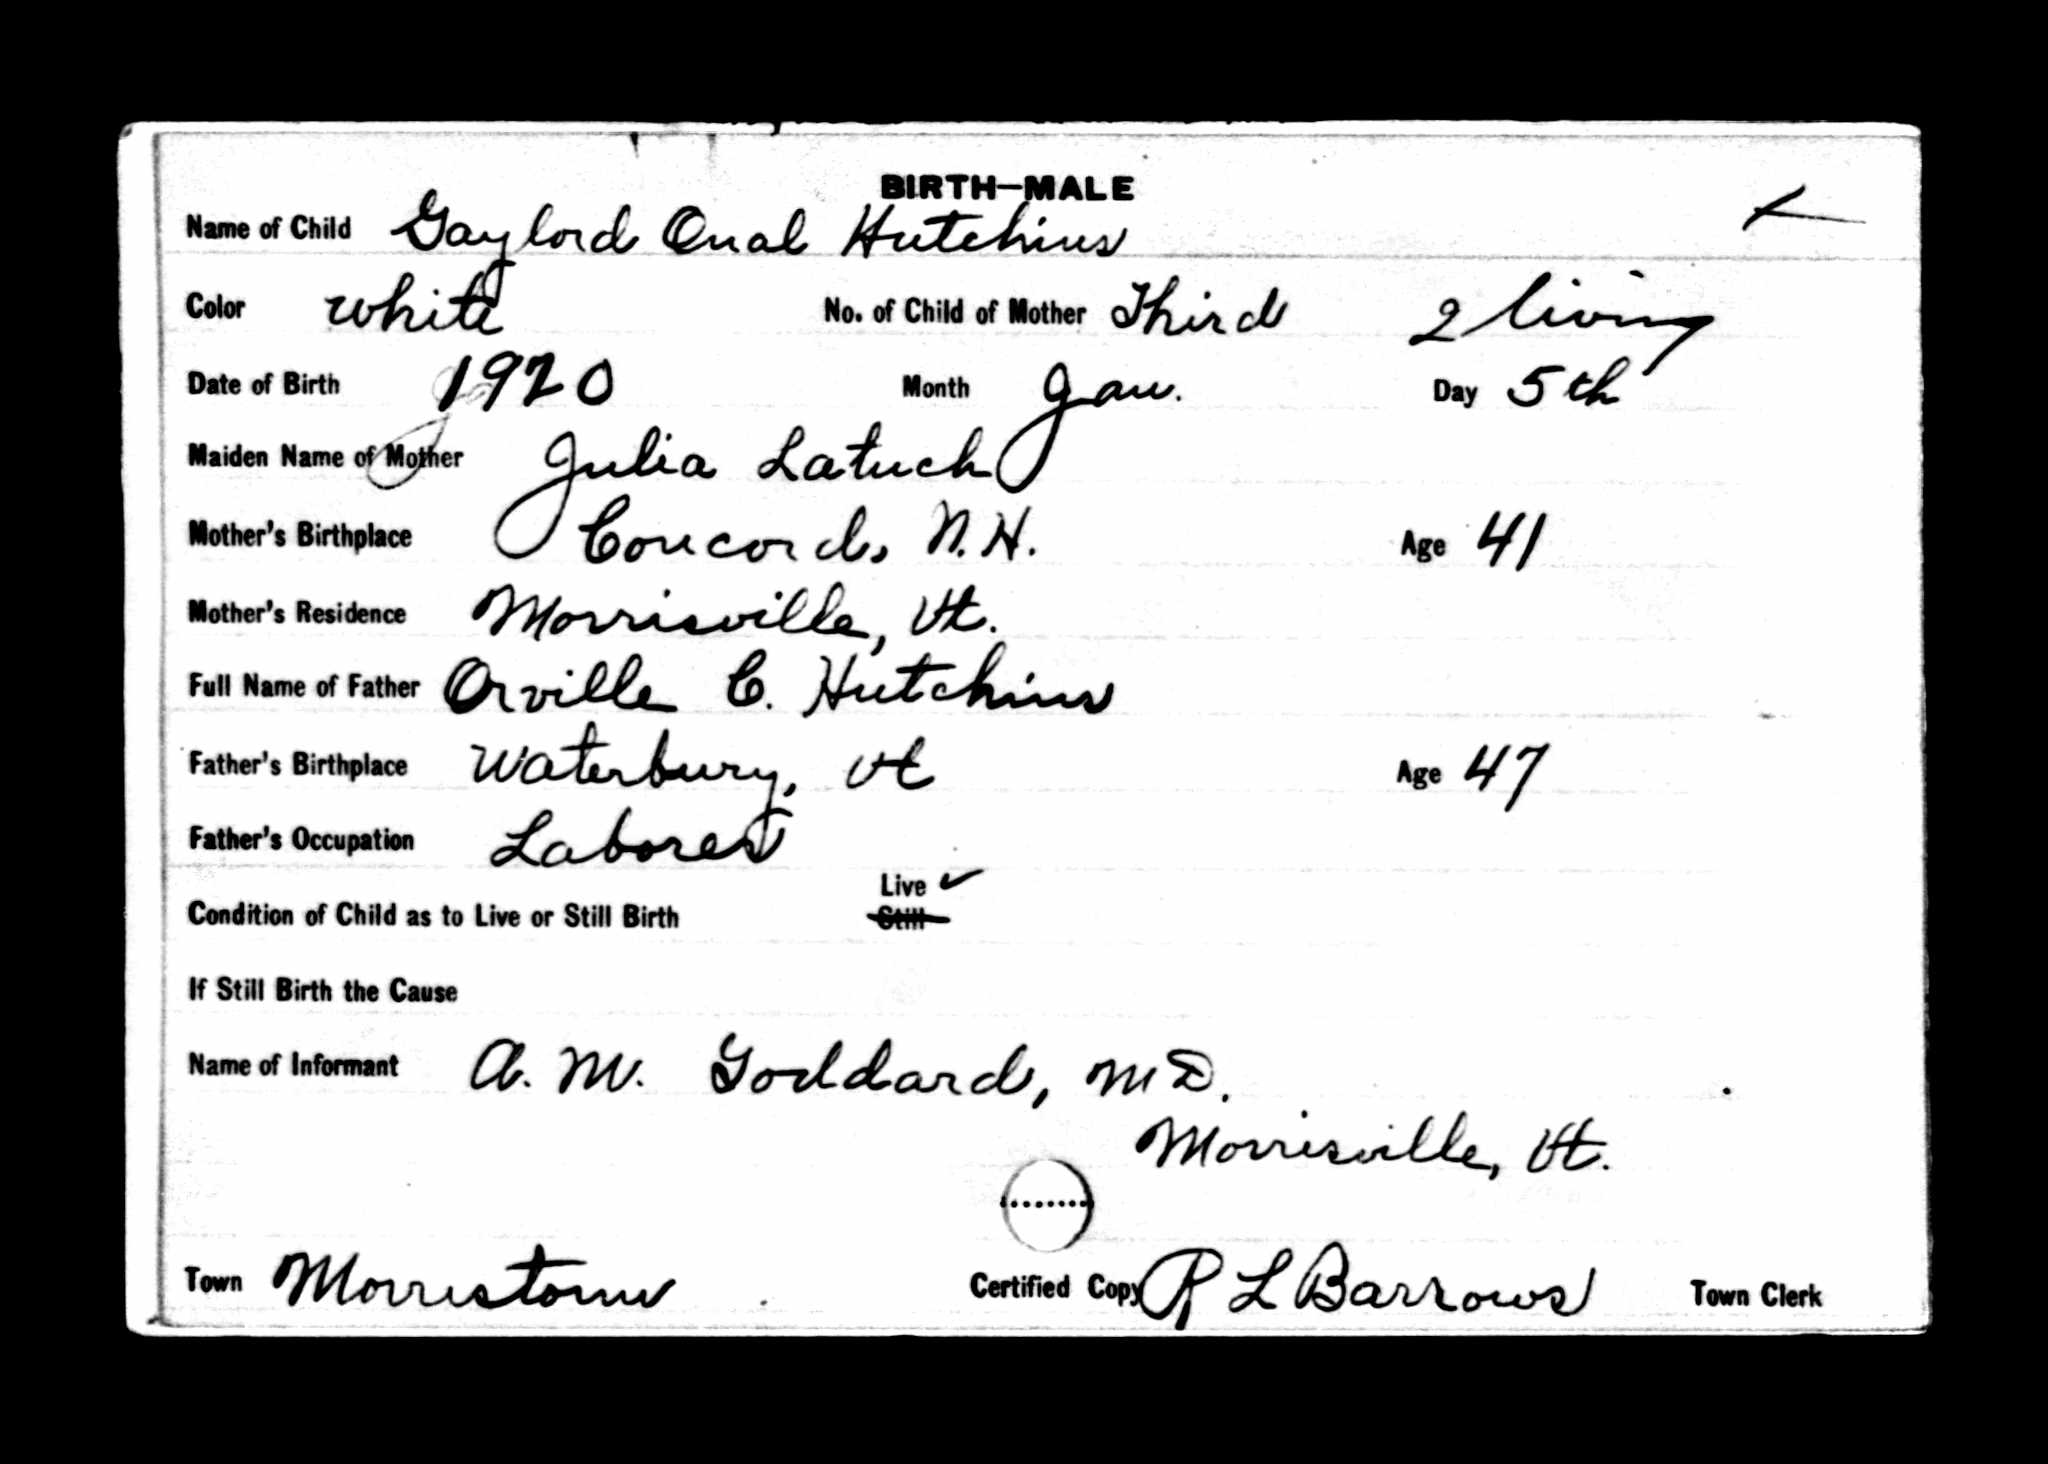 BIRTH—MALE
Name of Child Gaylord Oual Hutchins
Color White No. of Child of Mother Third 2 living
Date of Birth 1920 Month Jan. Day 5th
Maiden Name of Mother Julia Latuch
Mother's Birthplace Concord, N.H. Age 41
Mother's Residence Morrisville, Vt.
Full Name of Father Orville C. Hutchins
Father's Birthplace Waterbury, Vt Age 47
Father's Occupation Laborer
Live ✓
Condition of Child as to Live or Still Birth Still
If Still Birth the Cause
Name of Informant A. M. Goddard, M D.
Morrisville, Vt.
Town Morristown Certified Copy R L Barrows Town Clerk